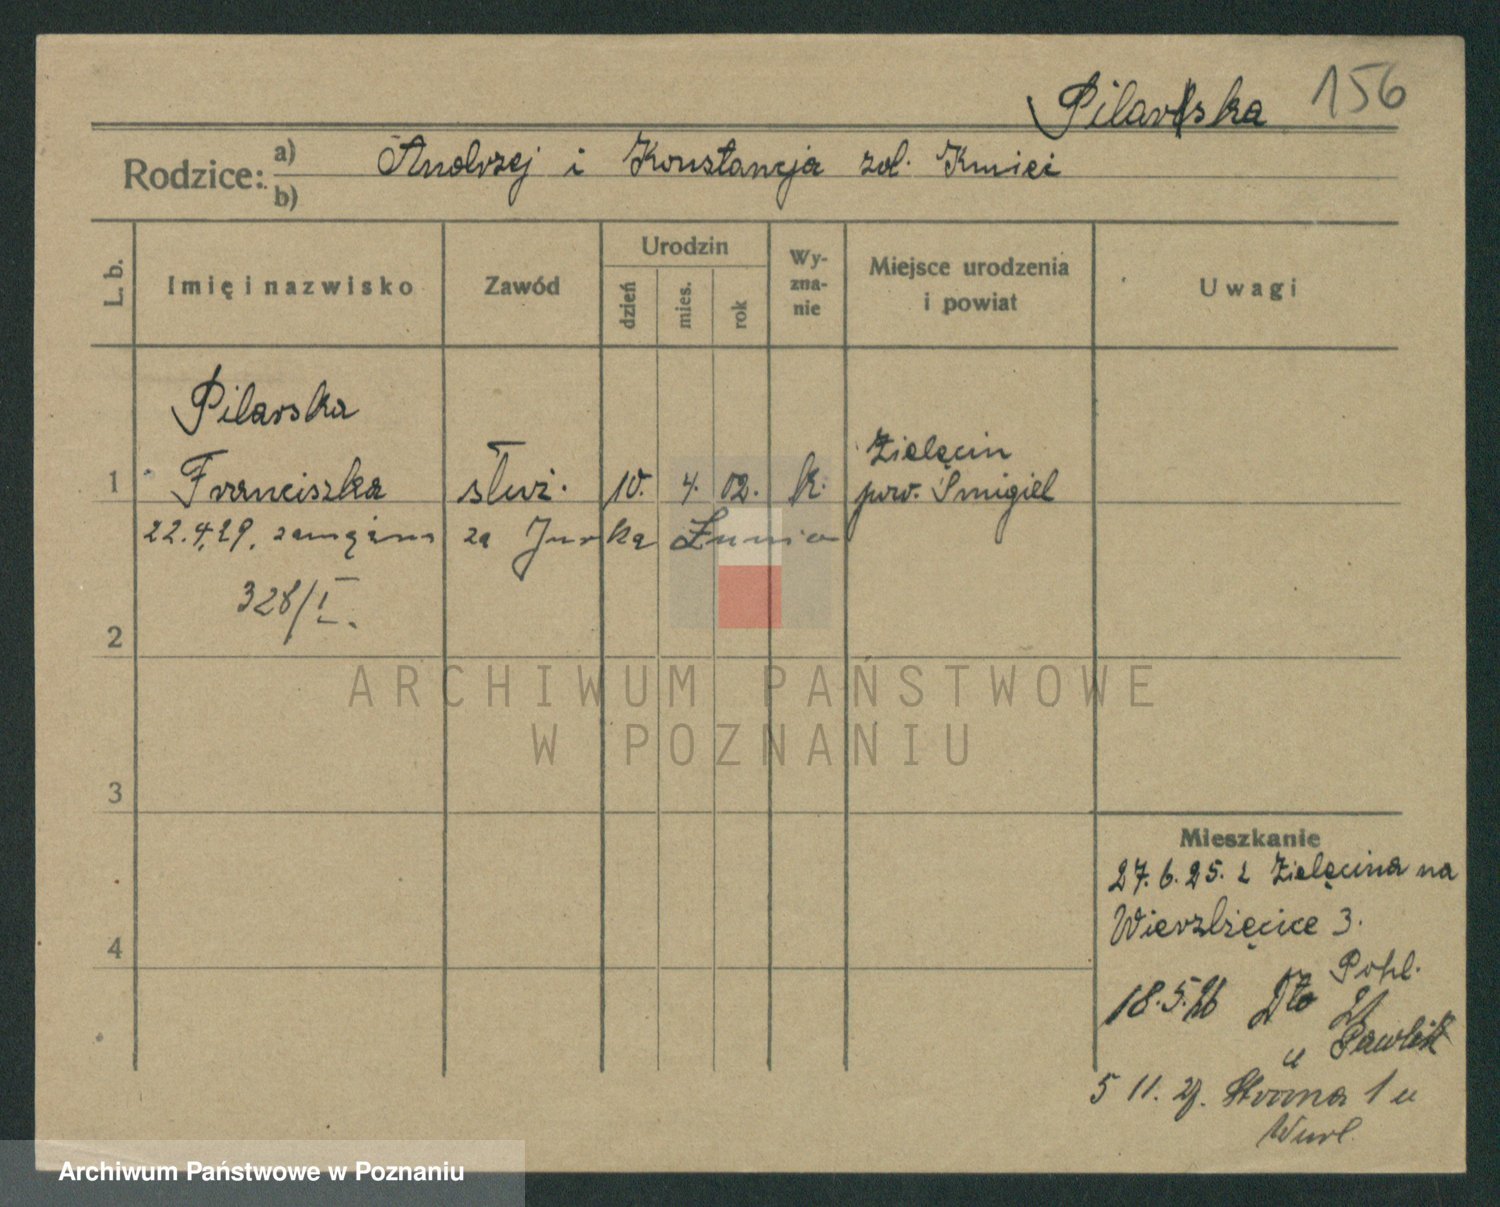 Pilarska 156
Rodzice: a) Andrzej i Konstancja zd. Kmieć
b)
L. b. Imię i nazwisko Zawód Urodzin dzień mies. rok Wyznanie Miejsce urodzenia i powiat Uwagi
Pilarska
1 Franciszka służ. 10. 4. 02. k. Zielęcin
pow. Śmigiel
22.4.29. zamężna za Jurka
328/I.
2
3
4
Mieszkanie
27. 6. 25. z Zielęcina na
Wierzbięcice 3.
Pohl.
18.5.26 Dto 21
u Pawlik
5 11. 29. Stroma 1 u
ARCHIWUM PAŃSTWOWE
W POZNANIU
Archiwum Państwowe w Poznaniu